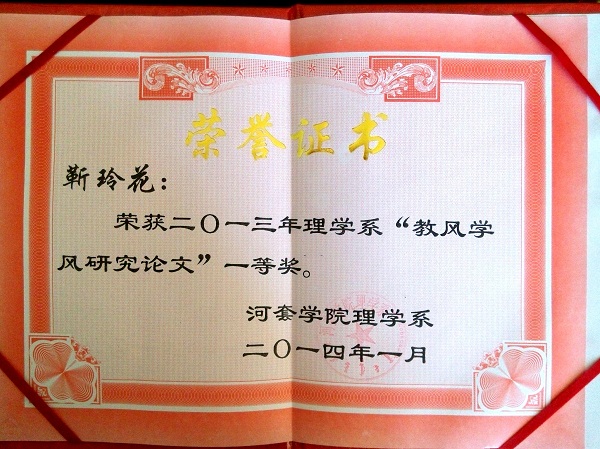 荣誉证书
靳玲花：
荣获二〇一三年理学系“教风学
风研究论文”一等奖。
河套学院理学系
二〇一四年一月